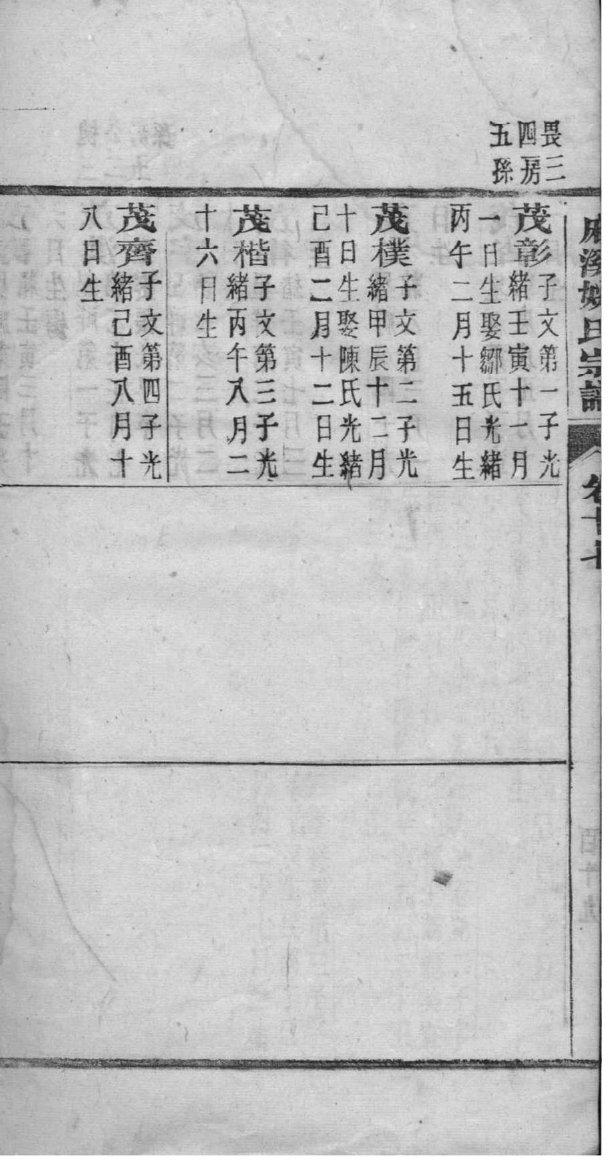 麻溪姚氏宗譜
卷十七
畏三
四房
五孫
茂彰子文第一子光
緒壬寅十一月
一日生娶鄒氏光緒
丙午二月十五日生
茂樸子文第二子光
緒甲辰十二月
十日生娶陳氏光緒
己酉二月十二日生
茂楷子文第三子光
緒丙午八月二
十六日生
茂齊子文第四子光
緒己酉八月十
八日生